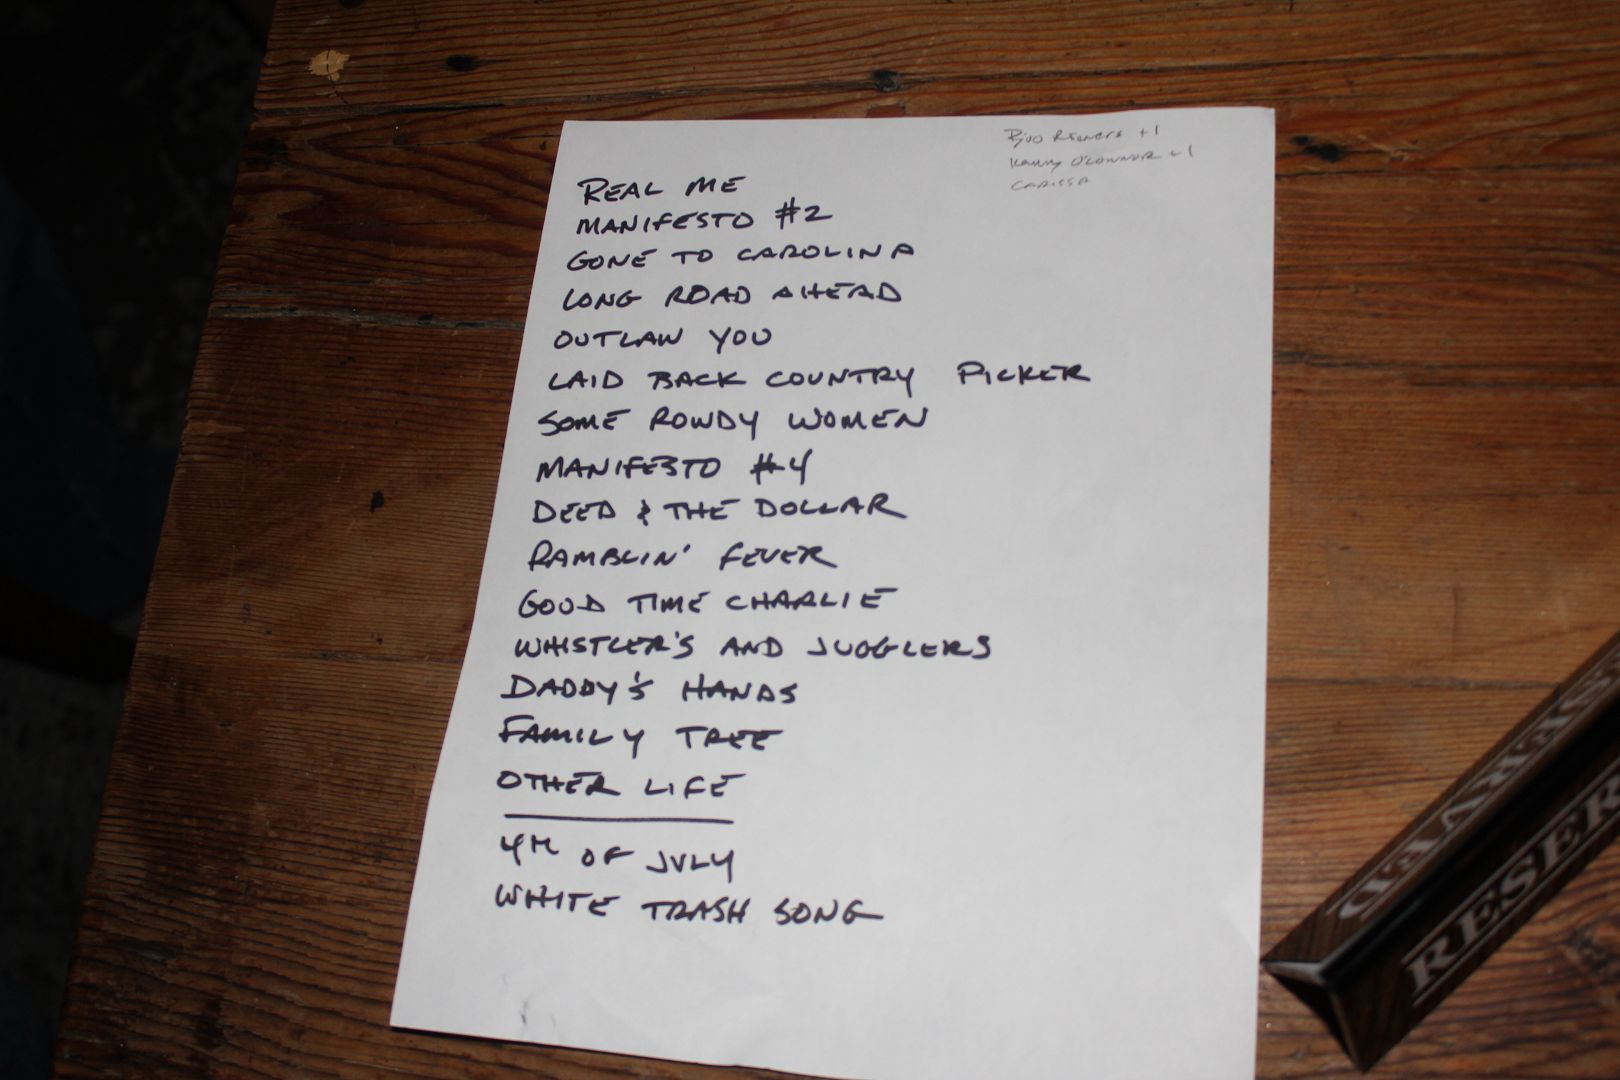 +1
Kenny O'Connor +1
Carissa
REAL ME
MANIFESTO #2
GONE TO CAROLINA
LONG ROAD AHEAD
OUTLAW YOU
LAID BACK COUNTRY PICKER
SOME ROWDY WOMEN
MANIFESTO #4
DEED & THE DOLLAR
RAMBLIN' FEVER
GOOD TIME CHARLIE
WHISTLER'S AND JUGGLERS
DADDY'S HANDS
FAMILY TREE
OTHER LIFE
4TH OF JULY
WHITE TRASH SONG
RESERVED
RESER